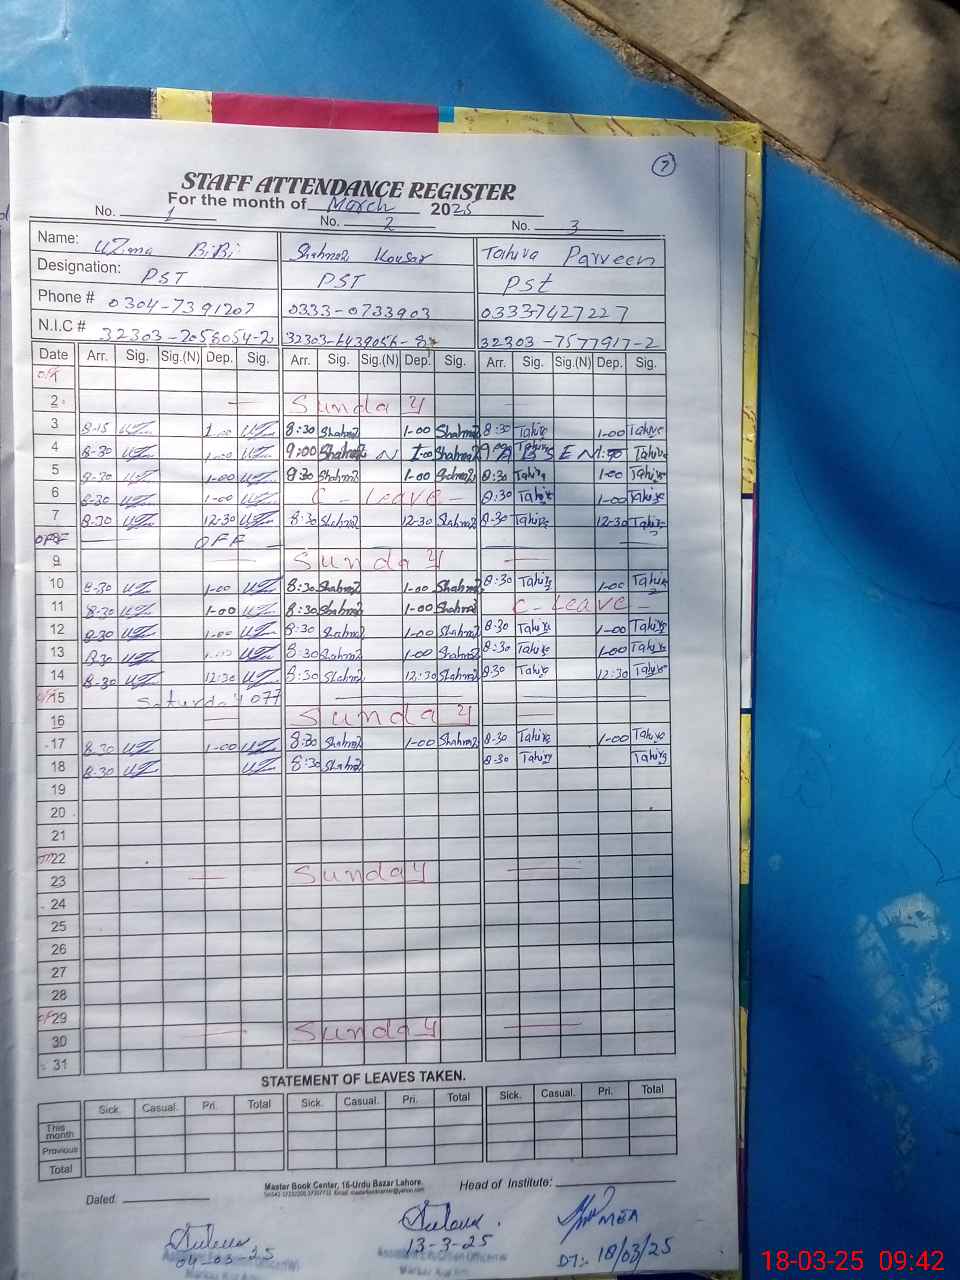 7
STAFF ATTENDANCE REGISTER
For the month of March 2025
No. 1 No. 2 No. 3
Name: Uzima BiBi Shahnaz Kousar Tahira Parveen
Designation: PST PST Pst
Phone # 0304-7391207 0333-0733903 03337427227
N.I.C # 32303-2058054-2 32303-1439056-8 32303-7577917-2
Date Arr. Sig. Sig.(N) Dep. Sig. Arr. Sig. Sig.(N) Dep. Sig. Arr. Sig. Sig.(N) Dep. Sig.
2 Sunday
3 8-15 1-00 8:30 Shahnaz 1-00 Shahnaz 8:30 Tahira 1-00 Tahira
4 8-30 1-00 9:00 Shahnaz 1-00 Shahnaz Tahira
5 8-30 1-00 8:30 Shahnaz 1-00 Shahnaz 8:30 Tahira 1-00 Tahira
6 8-30 1-00 C-Leave 8:30 Tahira 1-00 Tahira
7 8-30 12-30 8:30 Shahnaz 12-30 Shahnaz 8-30 Tahira 12-30 Tahira
OFF OFF
9 Sunday
10 8-30 1-00 8:30 Shahnaz 1-00 Shahnaz 8:30 Tahira 1-00 Tahira
11 8-30 1-00 8:30 Shahnaz 1-00 Shahnaz C-Leave
12 8-30 1-00 8:30 Shahnaz 1-00 Shahnaz 8-30 Tahira 1-00 Tahira
13 8-30 8:30 Shahnaz 1-00 Shahnaz 8:30 Tahira 1-00 Tahira
14 8-30 12:30 8:30 Shahnaz 12:30 Shahnaz 8:30 Tahira 12:30 Tahira
15 Saturday off
16 Sunday
17 8-30 1-00 8:30 Shahnaz 1-00 Shahnaz 8-30 Tahira 1-00 Tahira
18 8-30 8:30 Shahnaz 8-30 Tahira Tahira
19
20
21
22
23 Sunday
24
25
26
27
28
29
30 Sunday
31
STATEMENT OF LEAVES TAKEN.
Sick. Casual. Pri. Total Sick. Casual. Pri. Total Sick. Casual. Pri. Total
This month
Previous
Total
Master Book Center, 16-Urdu Bazar Lahore.
Dated. Head of Institute:
04-03-25
13-3-25
MEA
DT:- 18/03/25
18-03-25 09:42